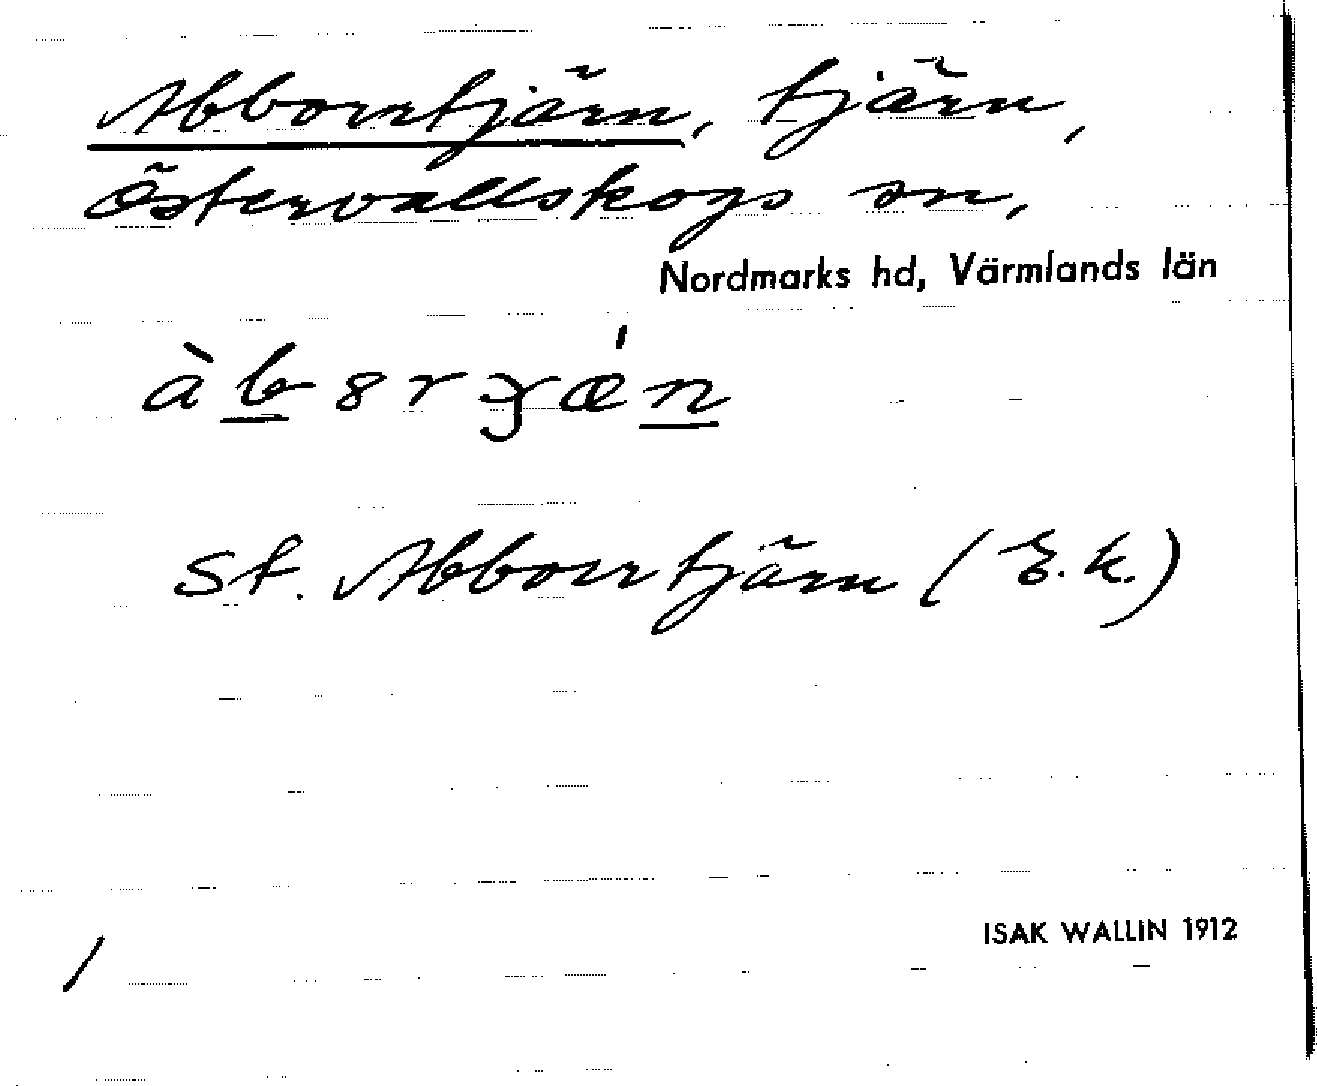 Abborrtjärn, tjärn,
Östervallskogs sn,
Nordmarks hd, Värmlands län
St. Abborrtjärn (E.k.)
ISAK WALLIN 1912